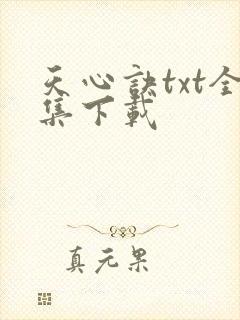 天心訣txt全
集下載
真元果